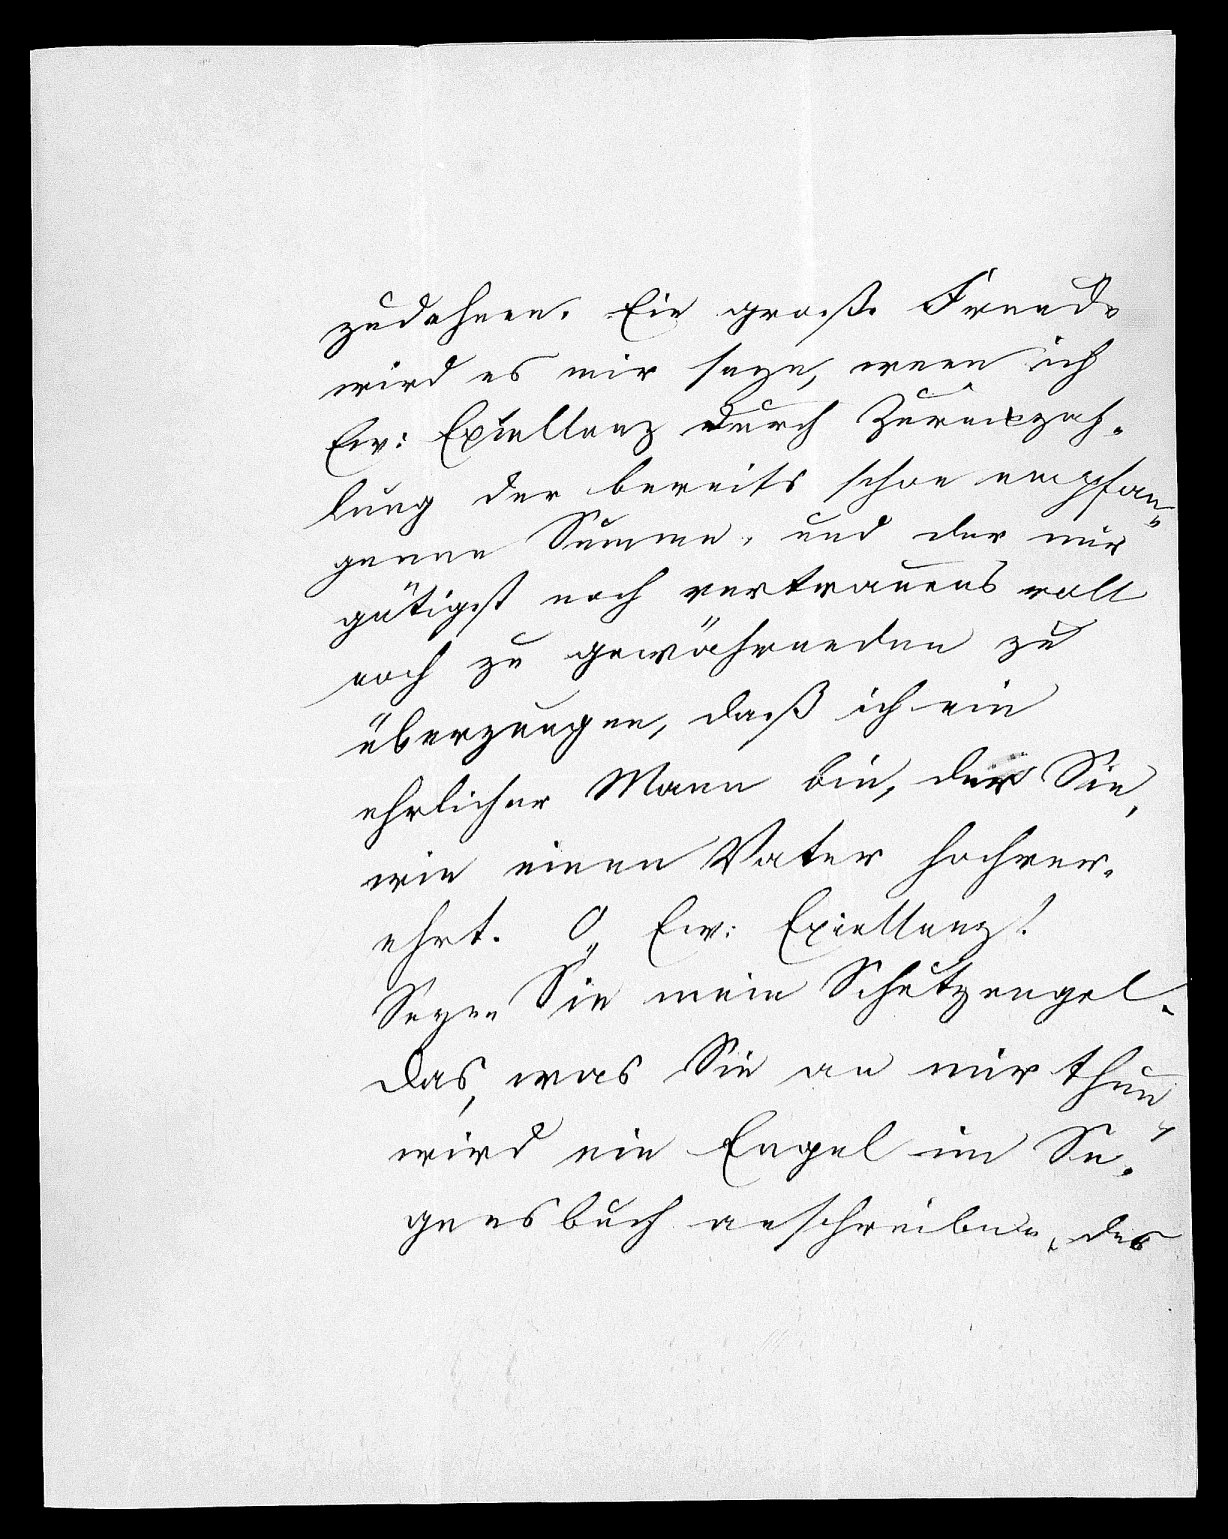 zudehnen. Eine große Freude
wird es mir seyn, wenn ich
Ew: Exiellenz durch Zurückzah-
lung der bereits schon empfan-
genen Summe, und der mir
gütigst noch vertrauensvoll
noch zu gewährenden zu
überzeugen, daß ich ein
ehrlicher Mann bin, der Sie,
wie einen Vater hochver-
ehrt. O, Ew: Exiellenz!
Seyen Sie mein Schutzengel.
Das, was Sie an mir thun,
wird ein Engel im Se-
gensbuch anschreiben, das